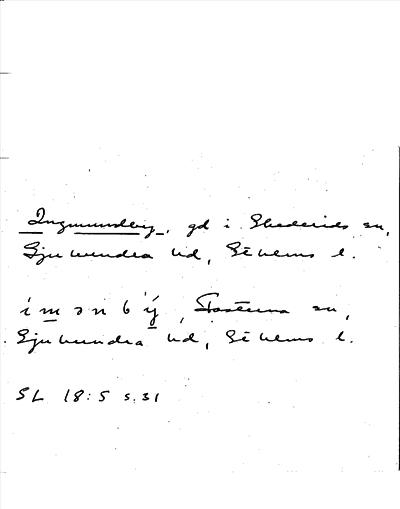 Ingmundeby, gd i Skederids sn,
Sjuhundra hd, Sthlms l.
i m ə n b ý, Fasterna sn,
Sjuhundra hd, Sthlms l.
SL 18:5 s. 31